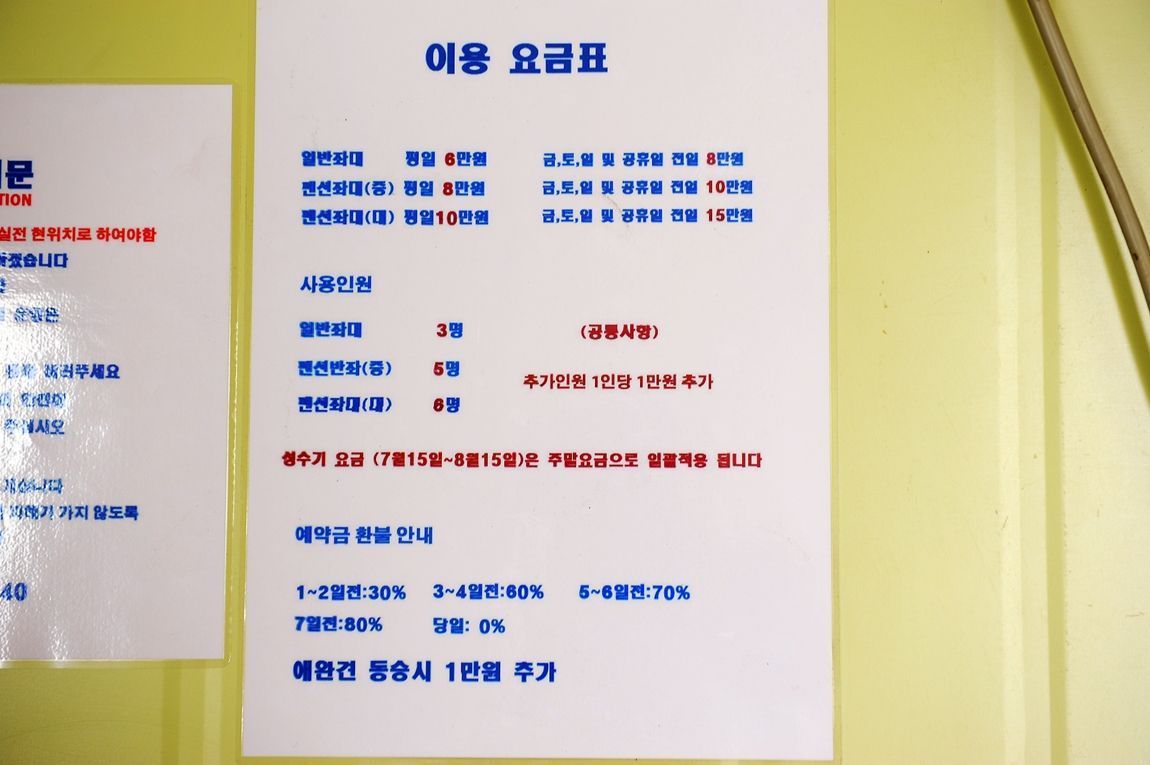 이용 요금표
일반좌대 평일 6만원 금,토,일 및 공휴일 전일 8만원
펜션좌대(중) 평일 8만원 금,토,일 및 공휴일 전일 10만원
펜션좌대(대) 평일10만원 금,토,일 및 공휴일 전일 15만원
사용인원
일반좌대 3명 (공통사항)
펜션반좌(중) 5명
추가인원 1인당 1만원 추가
펜션좌대(대) 6명
성수기 요금 (7월15일~8월15일)은 주말요금으로 일괄적용 됩니다
예약금 환불 안내
1~2일전:30% 3~4일전:60% 5~6일전:70%
7일전:80% 당일: 0%
애완견 동승시 1만원 추가
문
TION
실전 현위치로 하여야함
가지 않도록
40